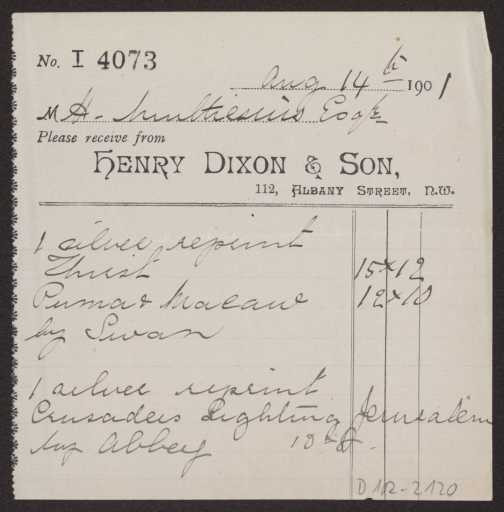 No. I 4073
Aug 14th 1901
M H. Muthesius Esqr
Please receive from
HENRY DIXON & SON,
112, ALBANY STREET, N.W.
1 silver reprint
Thirst 15 x 12
Puma & Macaw 12 x 10
by Swan
1 silver reprint
Crusaders Sighting Jerusalem
by Abbey
D 102-2120